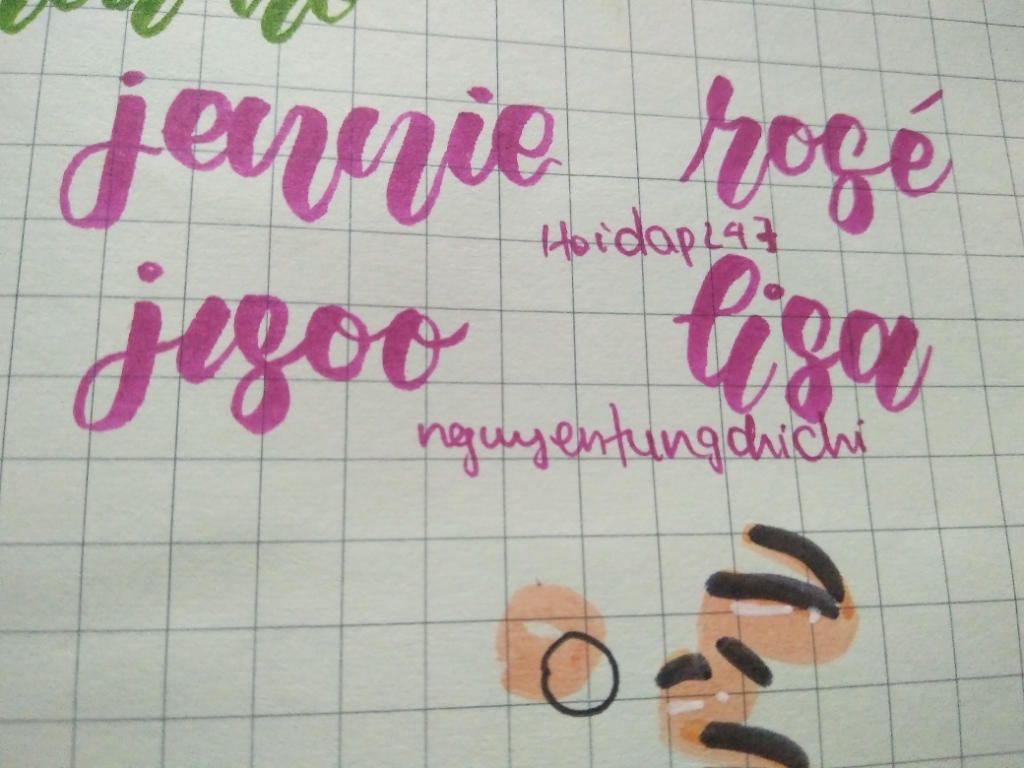 jennie rosé
Hoidap247
jisoo lisa
nguyentungchichi